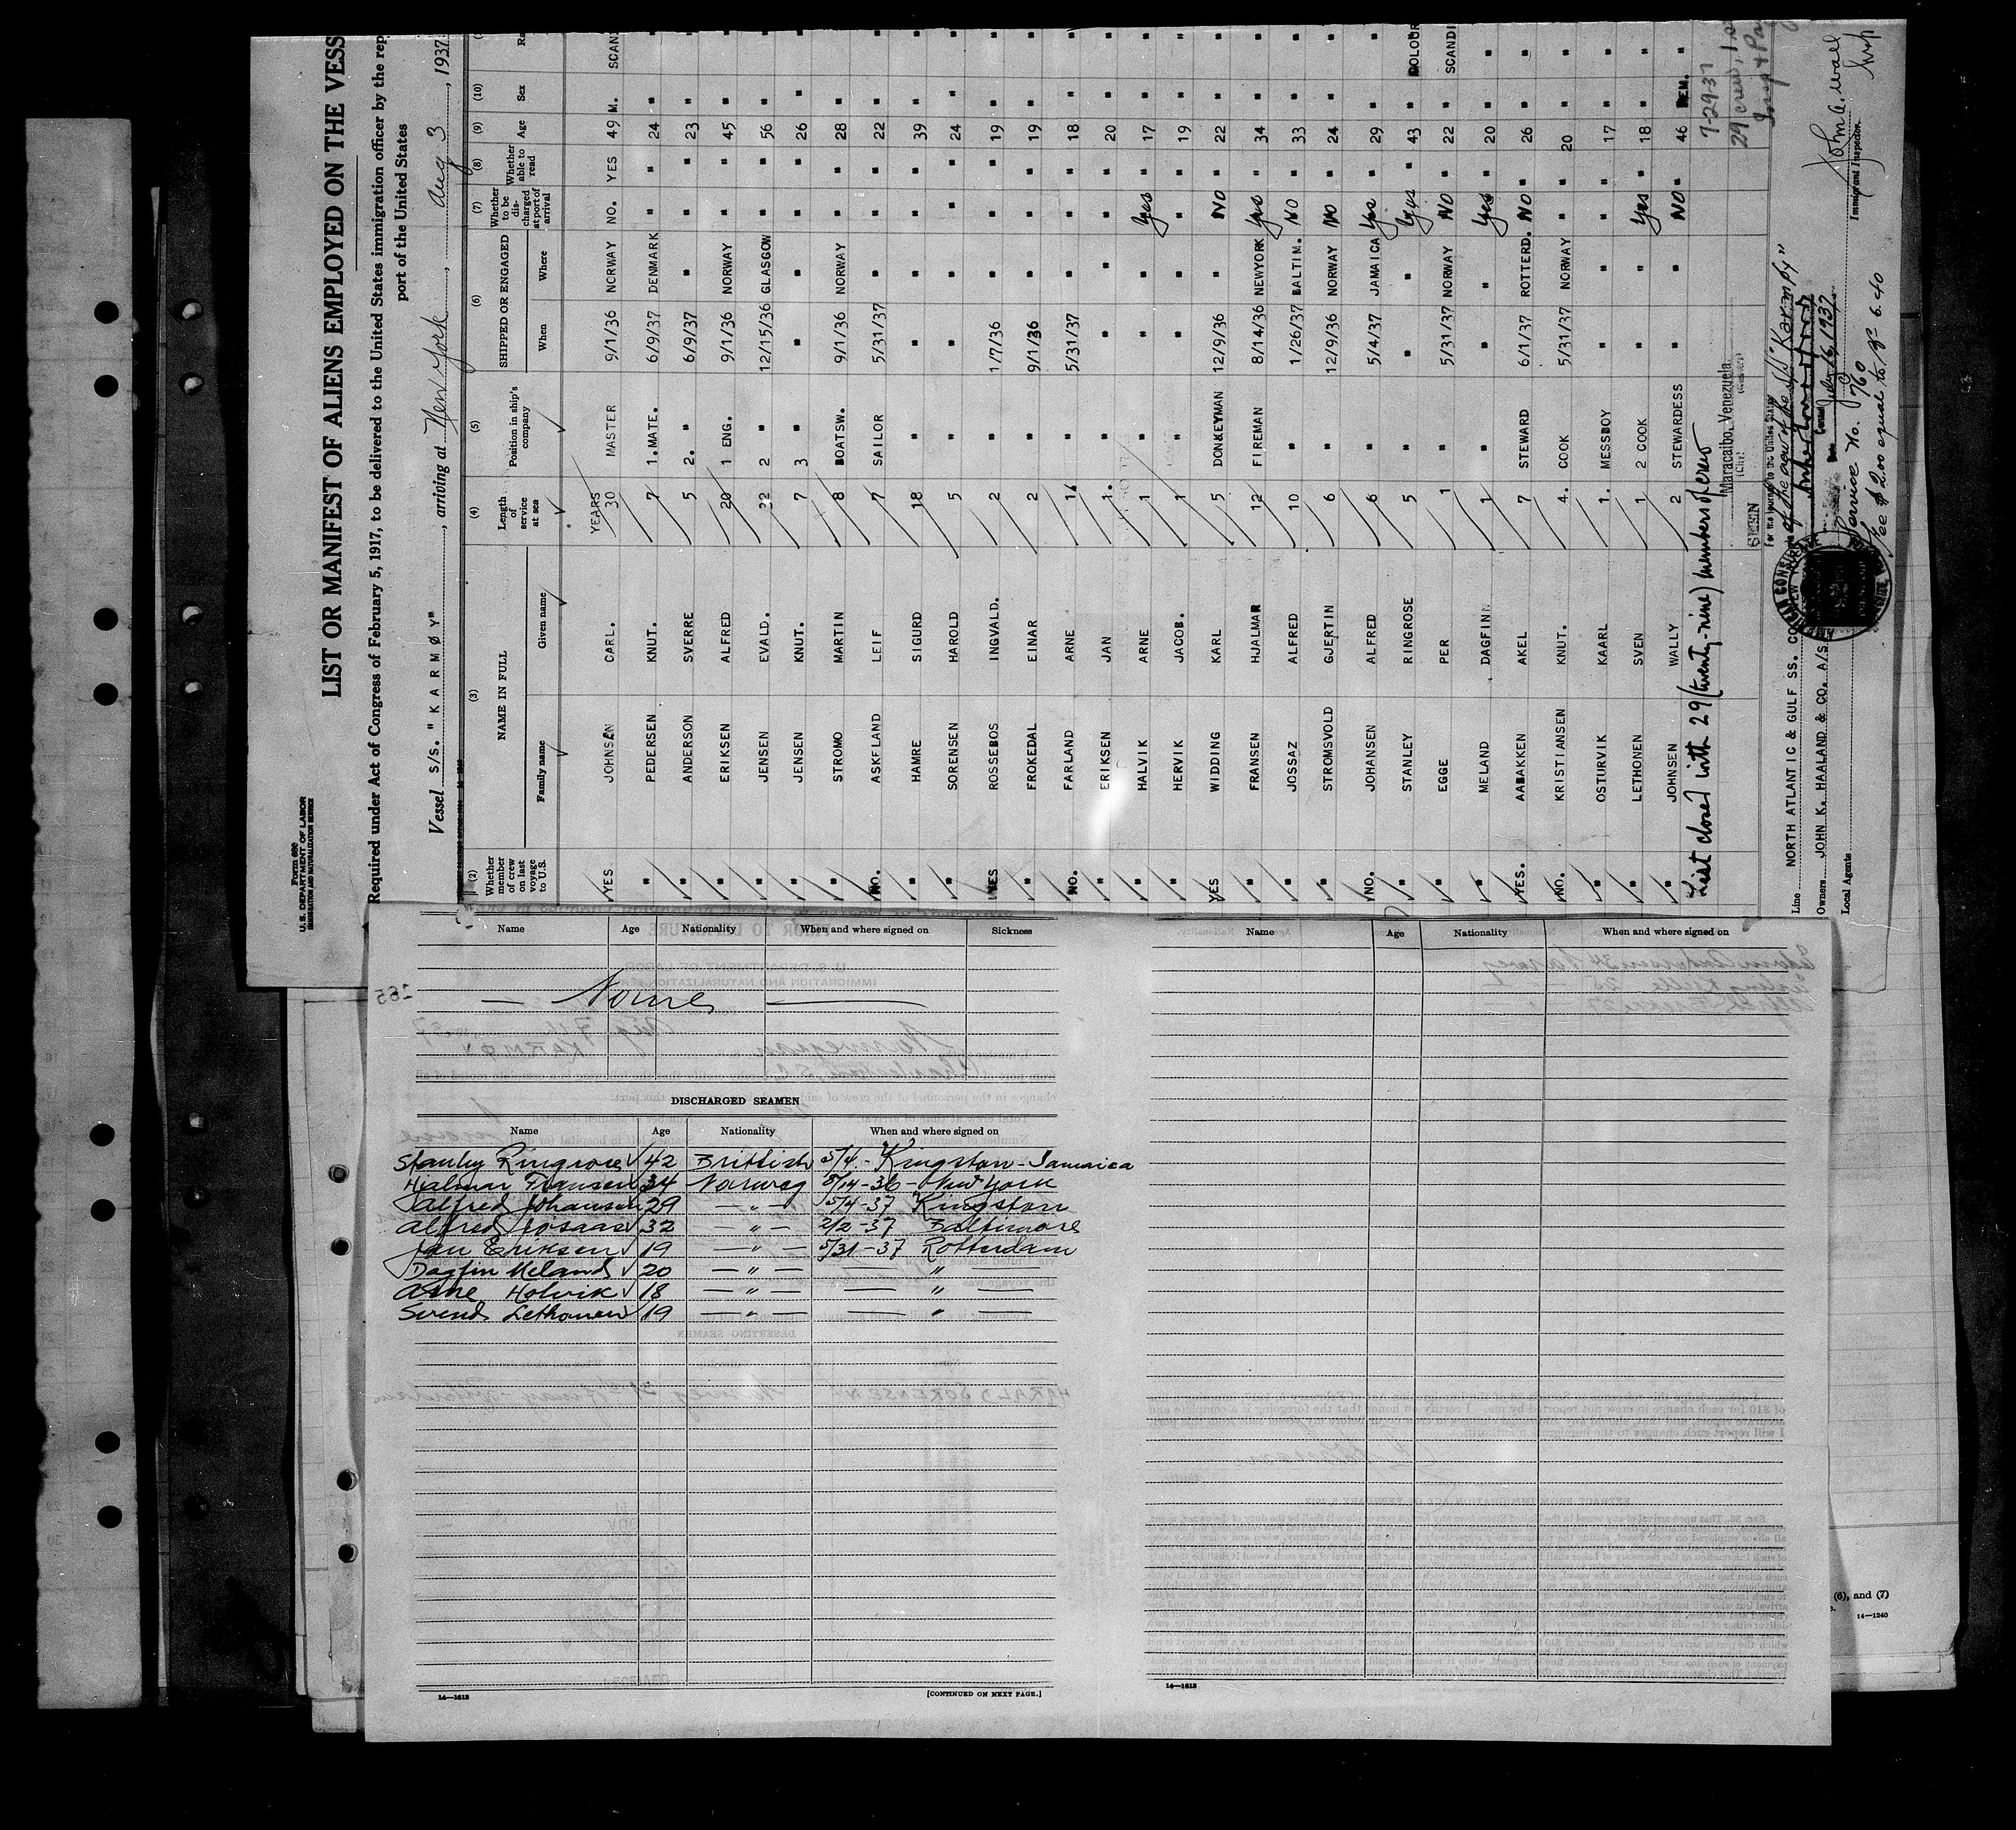 Form 680
U.S. DEPARTMENT OF LABOR
IMMIGRATION AND NATURALIZATION SERVICE
LIST OR MANIFEST OF ALIENS EMPLOYED ON THE VESS
Required under Act of Congress of February 5, 1917, to be delivered to the United States immigration officer by the rep
port of the United States
Vessel S/S. "KARMØY", arriving at New York, Aug 3, 1937
(2) (3) (4) (5) (6) (7) (8) (9) (10)
Whether member of crew on last voyage to U.S. NAME IN FULL Family name Given name Length of service at sea Position in ship's company SHIPPED OR ENGAGED When Where Whether to be discharged at port of arrival Whether able to read Age Sex Ra
YES JOHNSEN CARL. YEARS 30 MASTER 9/1/36 NORWAY NO. YES 49 M. SCAN
" PEDERSEN KNUT. 7 1.MATE. 6/9/37 DENMARK " " 24 " "
" ANDERSON SVERRE 5 2. " 6/9/37 " " " 23 " "
" ERIKSEN ALFRED 20 1 ENG. 9/1/36 NORWAY " " 45 " "
" JENSEN EVALD. 32 2 " 12/15/36 GLASGOW " " 56 " "
" JENSEN KNUT. 7 3 " " " " " 26 " "
" STROMO MARTIN 8 BOATSW. 9/1/36 NORWAY " " 28 " "
NO. ASKFLAND LEIF 7 SAILOR 5/31/37 " " " 22 " "
" HAMRE SIGURD 18 " " " " " 39 " "
" SORENSEN HAROLD 5 " " " " " 24 " "
YES ROSSEBOS INGVALD. 2 " 1/7/36 " " " 19 " "
" FROKEDAL EINAR 2 " 9/1/36 " " " 19 " "
NO. FARLAND ARNE 1 " 5/31/37 " " " 18 " "
" ERIKSEN JAN 1. " " " " " 20 " "
" HALVIK ARNE 1 " " " Yes " 17 " "
" HERVIK JACOB. 1 " " " " " 19 " "
YES WIDDING KARL 5 DONKEYMAN 12/9/36 " NO " 22 " "
" FRANSEN HJALMAR 12 FIREMAN 8/14/36 NEWYORK Yes " 34 " "
" JOSSAZ ALFRED 10 " 1/26/37 BALTIM. NO " 33 " "
" STROMSVOLD GJERTIN 6 " 12/9/36 NORWAY NO " 24 " "
NO. JOHANSEN ALFRED 6 " 5/4/37 JAMAICA Yes " 29 " "
" STANLEY RINGROSE 5 " " " Yes " 43 " COLOUR
" EGGE PER 1 " 5/31/37 NORWAY NO " 22 " SCANDI
" MELAND DAGFINN 1 " " " Yes " 20 " "
YES. AABAKKEN AKEL 7 STEWARD 6/1/37 ROTTERD. NO " 26 " "
NO. KRISTIANSEN KNUT. 4. COOK 5/31/37 NORWAY " " 20 " "
" OSTURVIK KAARL 1. MESSBOY " " " " 17 " "
" LETHONEN SVEN 1 2 COOK " " Yes " 18 " "
" JOHNSEN WALLY 2 STEWARDESS " " NO " 46 FEM. "
List closed with 29 (twenty-nine) members of crew
7-29-37
SEEN
Maracaibo, Venezuela.
(City)
For the journey to the United States
of the crew of the S/S "Karmøy"
Date July 16, 1937
Service No. 760
Fee $2.00 equal to Bs 6.40
Line NORTH ATLANTIC & GULF SS. CO
Owners JOHN K. HAALAND & CO. A/S
Local Agents
Immigrant Inspector.
Name Age Nationality When and where signed on Sickness
— None —
DISCHARGED SEAMEN
Name Age Nationality When and where signed on
Stanley Ringrose 42 Brittish 5/4.- Kingston - Jamaica
Hjalmar Fransen 34 Norweg 5/14-36 - New York
Alfred Johansen 29 — " — 5/4-37 Kingston
Alfred Josaas 32 — " — 2/2-37 Baltimore
Jan Eriksen 19 — " — 5/31-37 Rotterdam
Dagfin Meland 20 — " — — " —
Arne Holvik 18 — " — — " —
Svend Lethonen 19 — " — — " —
14—1613
[CONTINUED ON NEXT PAGE.]
Name Age Nationality When and where signed on
14—1613
(6), and (7)
14—1240